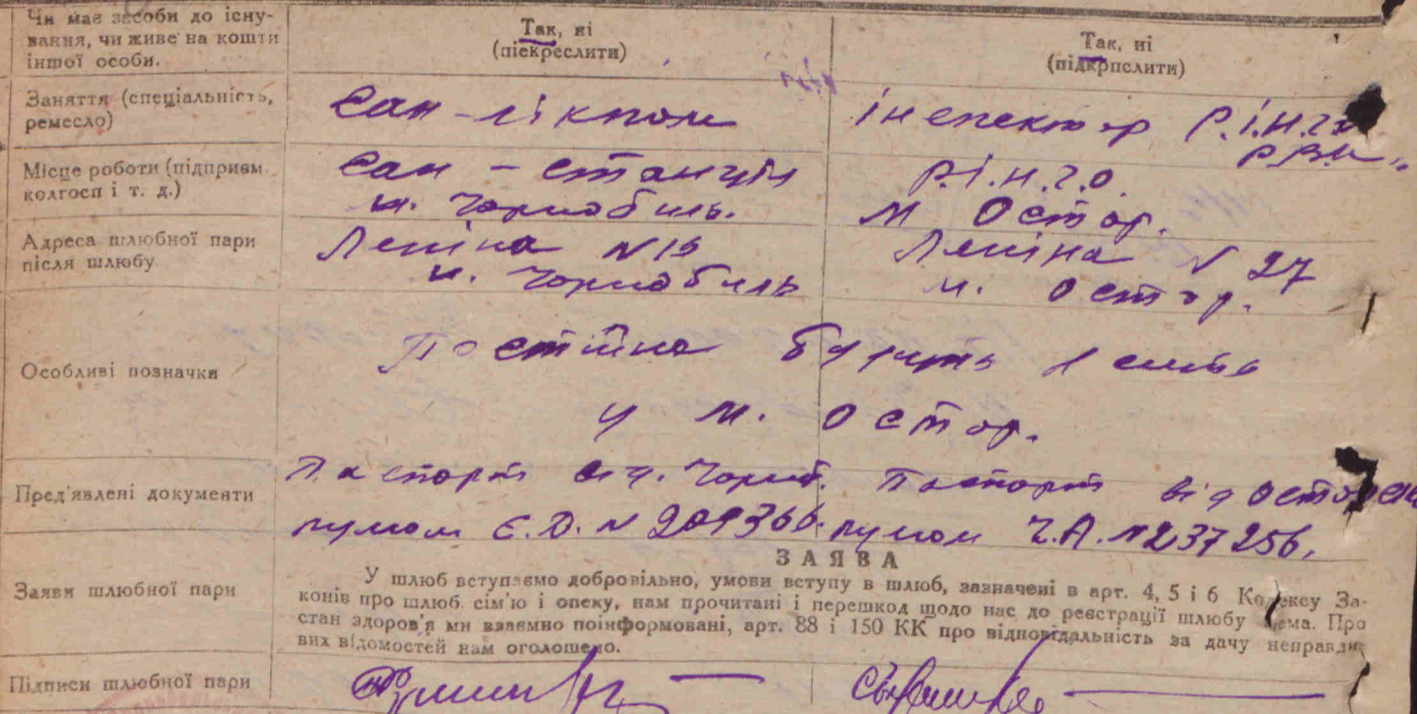 Чи має засоби до існу-
вання, чи живе на кошти
іншої особи.
Так, ні
(піекреслити)
Так, ні
(підкрпслити)
Заняття (спеціальність,
ремесло)
Сан-
інспектор Р.І.Н.Г.О.
Місце роботи (підприєм.
колгосп і т. д.)
Сан - станція
м. Чорнобиль.
Р.І.Н.Г.О.
м Остор.
Адреса шлюбної пари
після шлюбу
Леніна №
м. Чорнобиль
Леніна № 27
м. Остор.
Особливі позначки
Постійно будуть
у м. Остор.
Пред'явлені документи
Паспорт від. Чорноб.
Є.D. № 209366.
Паспорт від
Ч.А. №237256.
Заяви шлюбної пари
ЗАЯВА
У шлюб вступаємо добровільно, умови вступу в шлюб, зазначені в арт. 4, 5 і 6 Кодексу За-
конів про шлюб. сім'ю і опеку, нам прочитані і перешкод щодо нас до реєстрації шлюбу нема. Про
стан здоров'я ми взаємно поінформовані, арт. 88 і 150 КК про відповідальність за дачу неправди-
вих відомостей нам оголошено.
Підписи шлюбної пари